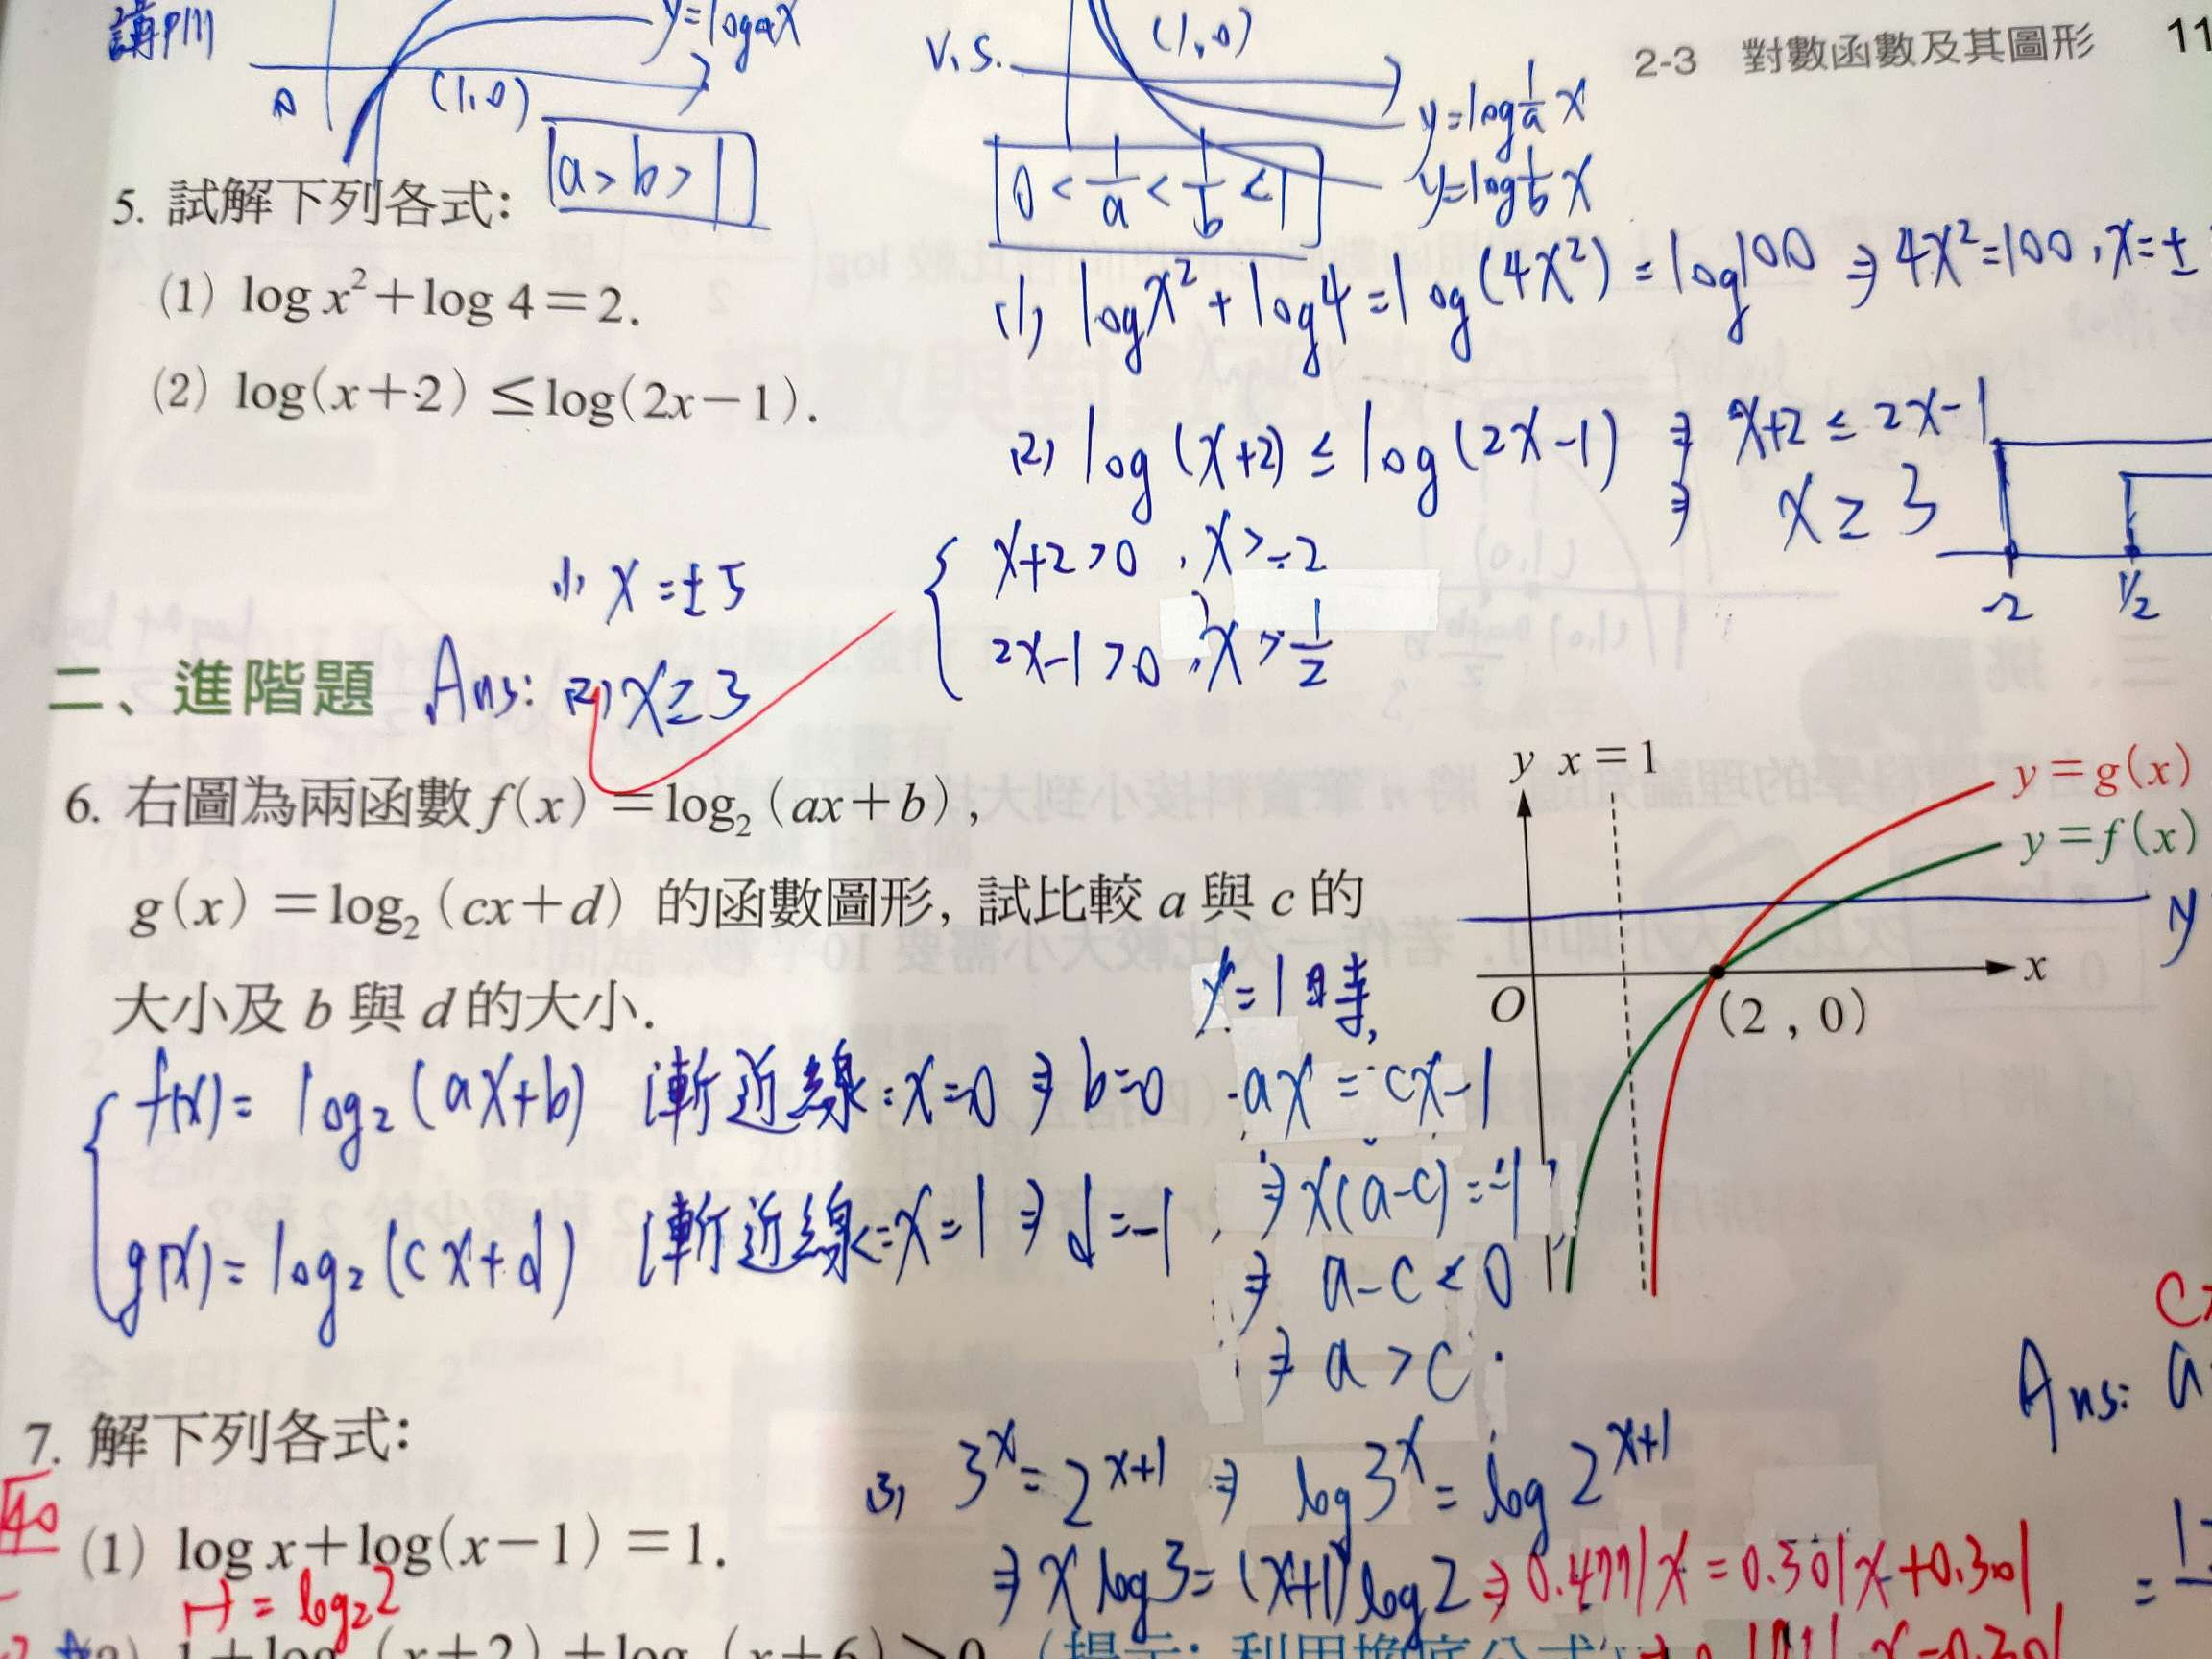 講P111
y=logax
(1,0)
a>b>1
V.S.
(1,0)
y=log1/a x
y=log1/b x
0<1/a<1/b<1
2-3 對數函數及其圖形 11
5. 試解下列各式:
(1) log x²+log 4=2.
(2) log(x+2)≤log(2x-1).
(1) logx²+log4=log(4x²)=log100 ⇒ 4x²=100,x=±
(2) log(x+2)≤log(2x-1) ⇒ x+2≤2x-1
⇒ x≥3
{ x+2>0 , x>-2
2x-1>0 , x>1/2
-2 1/2
(1) x=±5
Ans: (2) x≥3
二、進階題
6. 右圖為兩函數 f(x)=log₂(ax+b),
g(x)=log₂(cx+d) 的函數圖形, 試比較 a 與 c 的
大小及 b 與 d 的大小.
y x=1
y=g(x)
y=f(x)
y
x
O
(2,0)
{ f(x)=log₂(ax+b) 漸近線:x=0 ⇒ b=0
g(x)=log₂(cx+d) 漸近線:x=1 ⇒ d=-1
y=1時,
ax=cx-1
⇒ x(a-c)=-1
⇒ a-c<0
⇒ a>c
Ans: a
7. 解下列各式:
(1) log x+log(x-1)=1.
1=log₂2
(3) 3^x=2^(x+1) ⇒ log3^x=log2^(x+1)
⇒ xlog3=(x+1)log2 ⇒ 0.4771x=0.301x+0.301
1+log (x+2)+log (x+6)>0 (提示: 利用換底公式